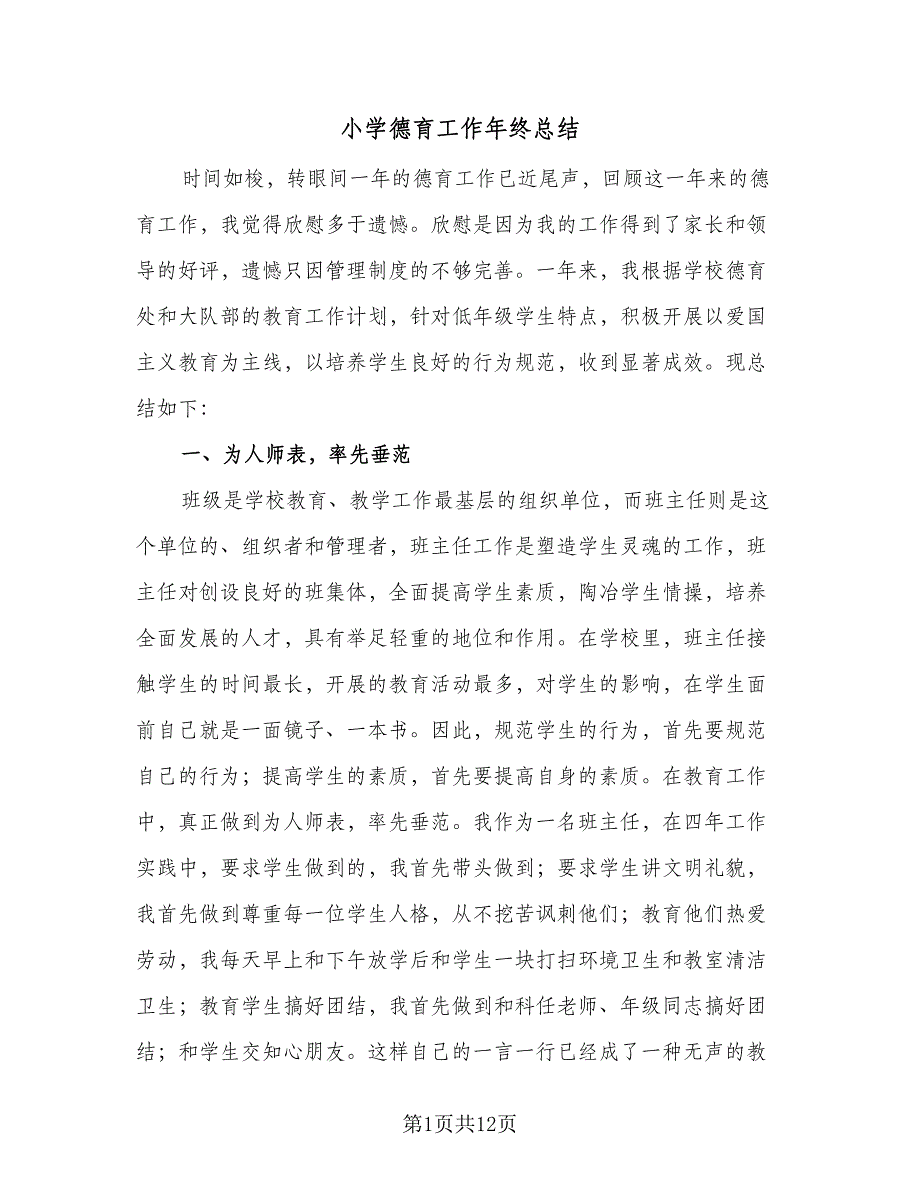 小学德育工作年终总结
时间如梭，转眼间一年的德育工作已近尾声，回顾这一年来的德
育工作，我觉得欣慰多于遗憾。欣慰是因为我的工作得到了家长和领
导的好评，遗憾只因管理制度的不够完善。一年来，我根据学校德育
处和大队部的教育工作计划，针对低年级学生特点，积极开展以爱国
主义教育为主线，以培养学生良好的行为规范，收到显著成效。现总
结如下：
一、为人师表，率先垂范
班级是学校教育、教学工作最基层的组织单位，而班主任则是这
个单位的、组织者和管理者，班主任工作是塑造学生灵魂的工作，班
主任对创设良好的班集体，全面提高学生素质，陶冶学生情操，培养
全面发展的人才，具有举足轻重的地位和作用。在学校里，班主任接
触学生的时间最长，开展的教育活动最多，对学生的影响，在学生面
前自己就是一面镜子、一本书。因此，规范学生的行为，首先要规范
自己的行为；提高学生的素质，首先要提高自身的素质。在教育工作
中，真正做到为人师表，率先垂范。我作为一名班主任，在四年工作
实践中，要求学生做到的，我首先带头做到；要求学生讲文明礼貌，
我首先做到尊重每一位学生人格，从不挖苦讽刺他们；教育他们热爱
劳动，我每天早上和下午放学后和学生一块打扫环境卫生和教室清洁
卫生；教育学生搞好团结，我首先做到和科任老师、年级同志搞好团
结；和学生交知心朋友。这样自己的一言一行已经成了一种无声的教
第1页共12页